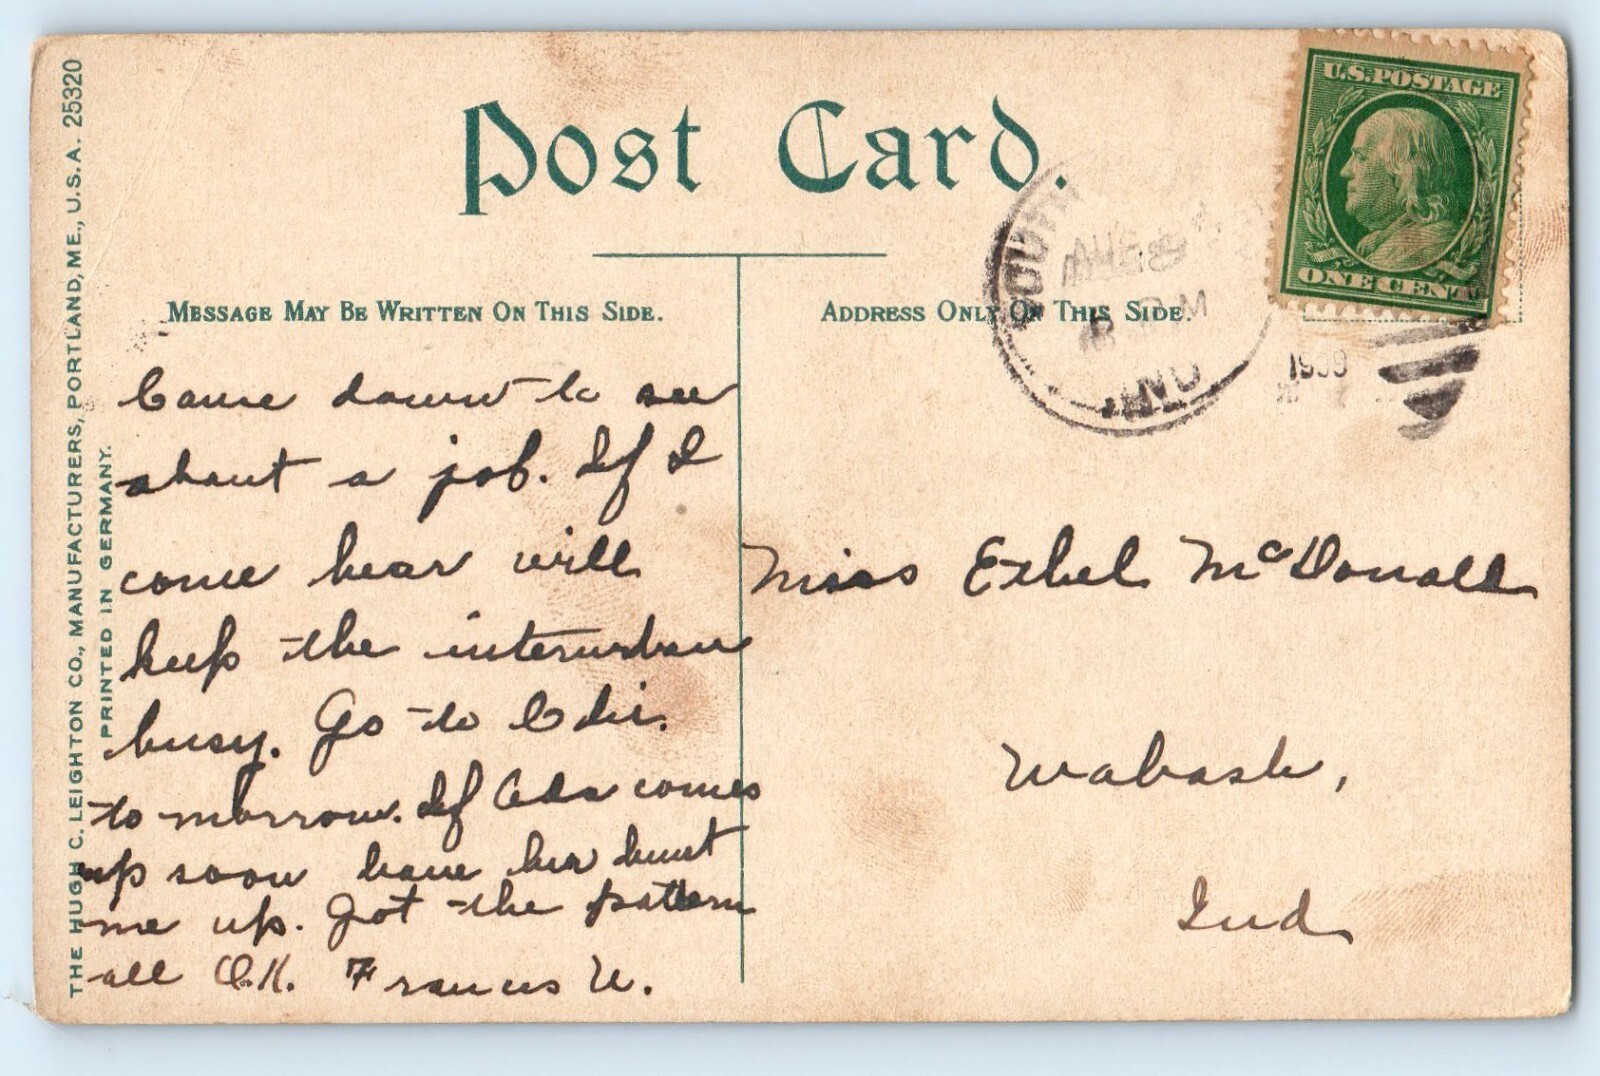 THE HUGH C. LEIGHTON CO., MANUFACTURERS, PORTLAND, ME., U.S.A. 25320
PRINTED IN GERMANY.
Post Card.
MESSAGE MAY BE WRITTEN ON THIS SIDE.
ADDRESS ONLY ON THIS SIDE.
U.S.POSTAGE
ONE CENT
SOUTH
8
M
IND
Came down to see
about a job. If I
come hear will
keep the interurban
busy. Go to
to morrow. If Ada comes
up soon have her hunt
me up. Got the pattern
all O.K. Francis W.
Miss Ethel McDonall
Wabash,
Ind